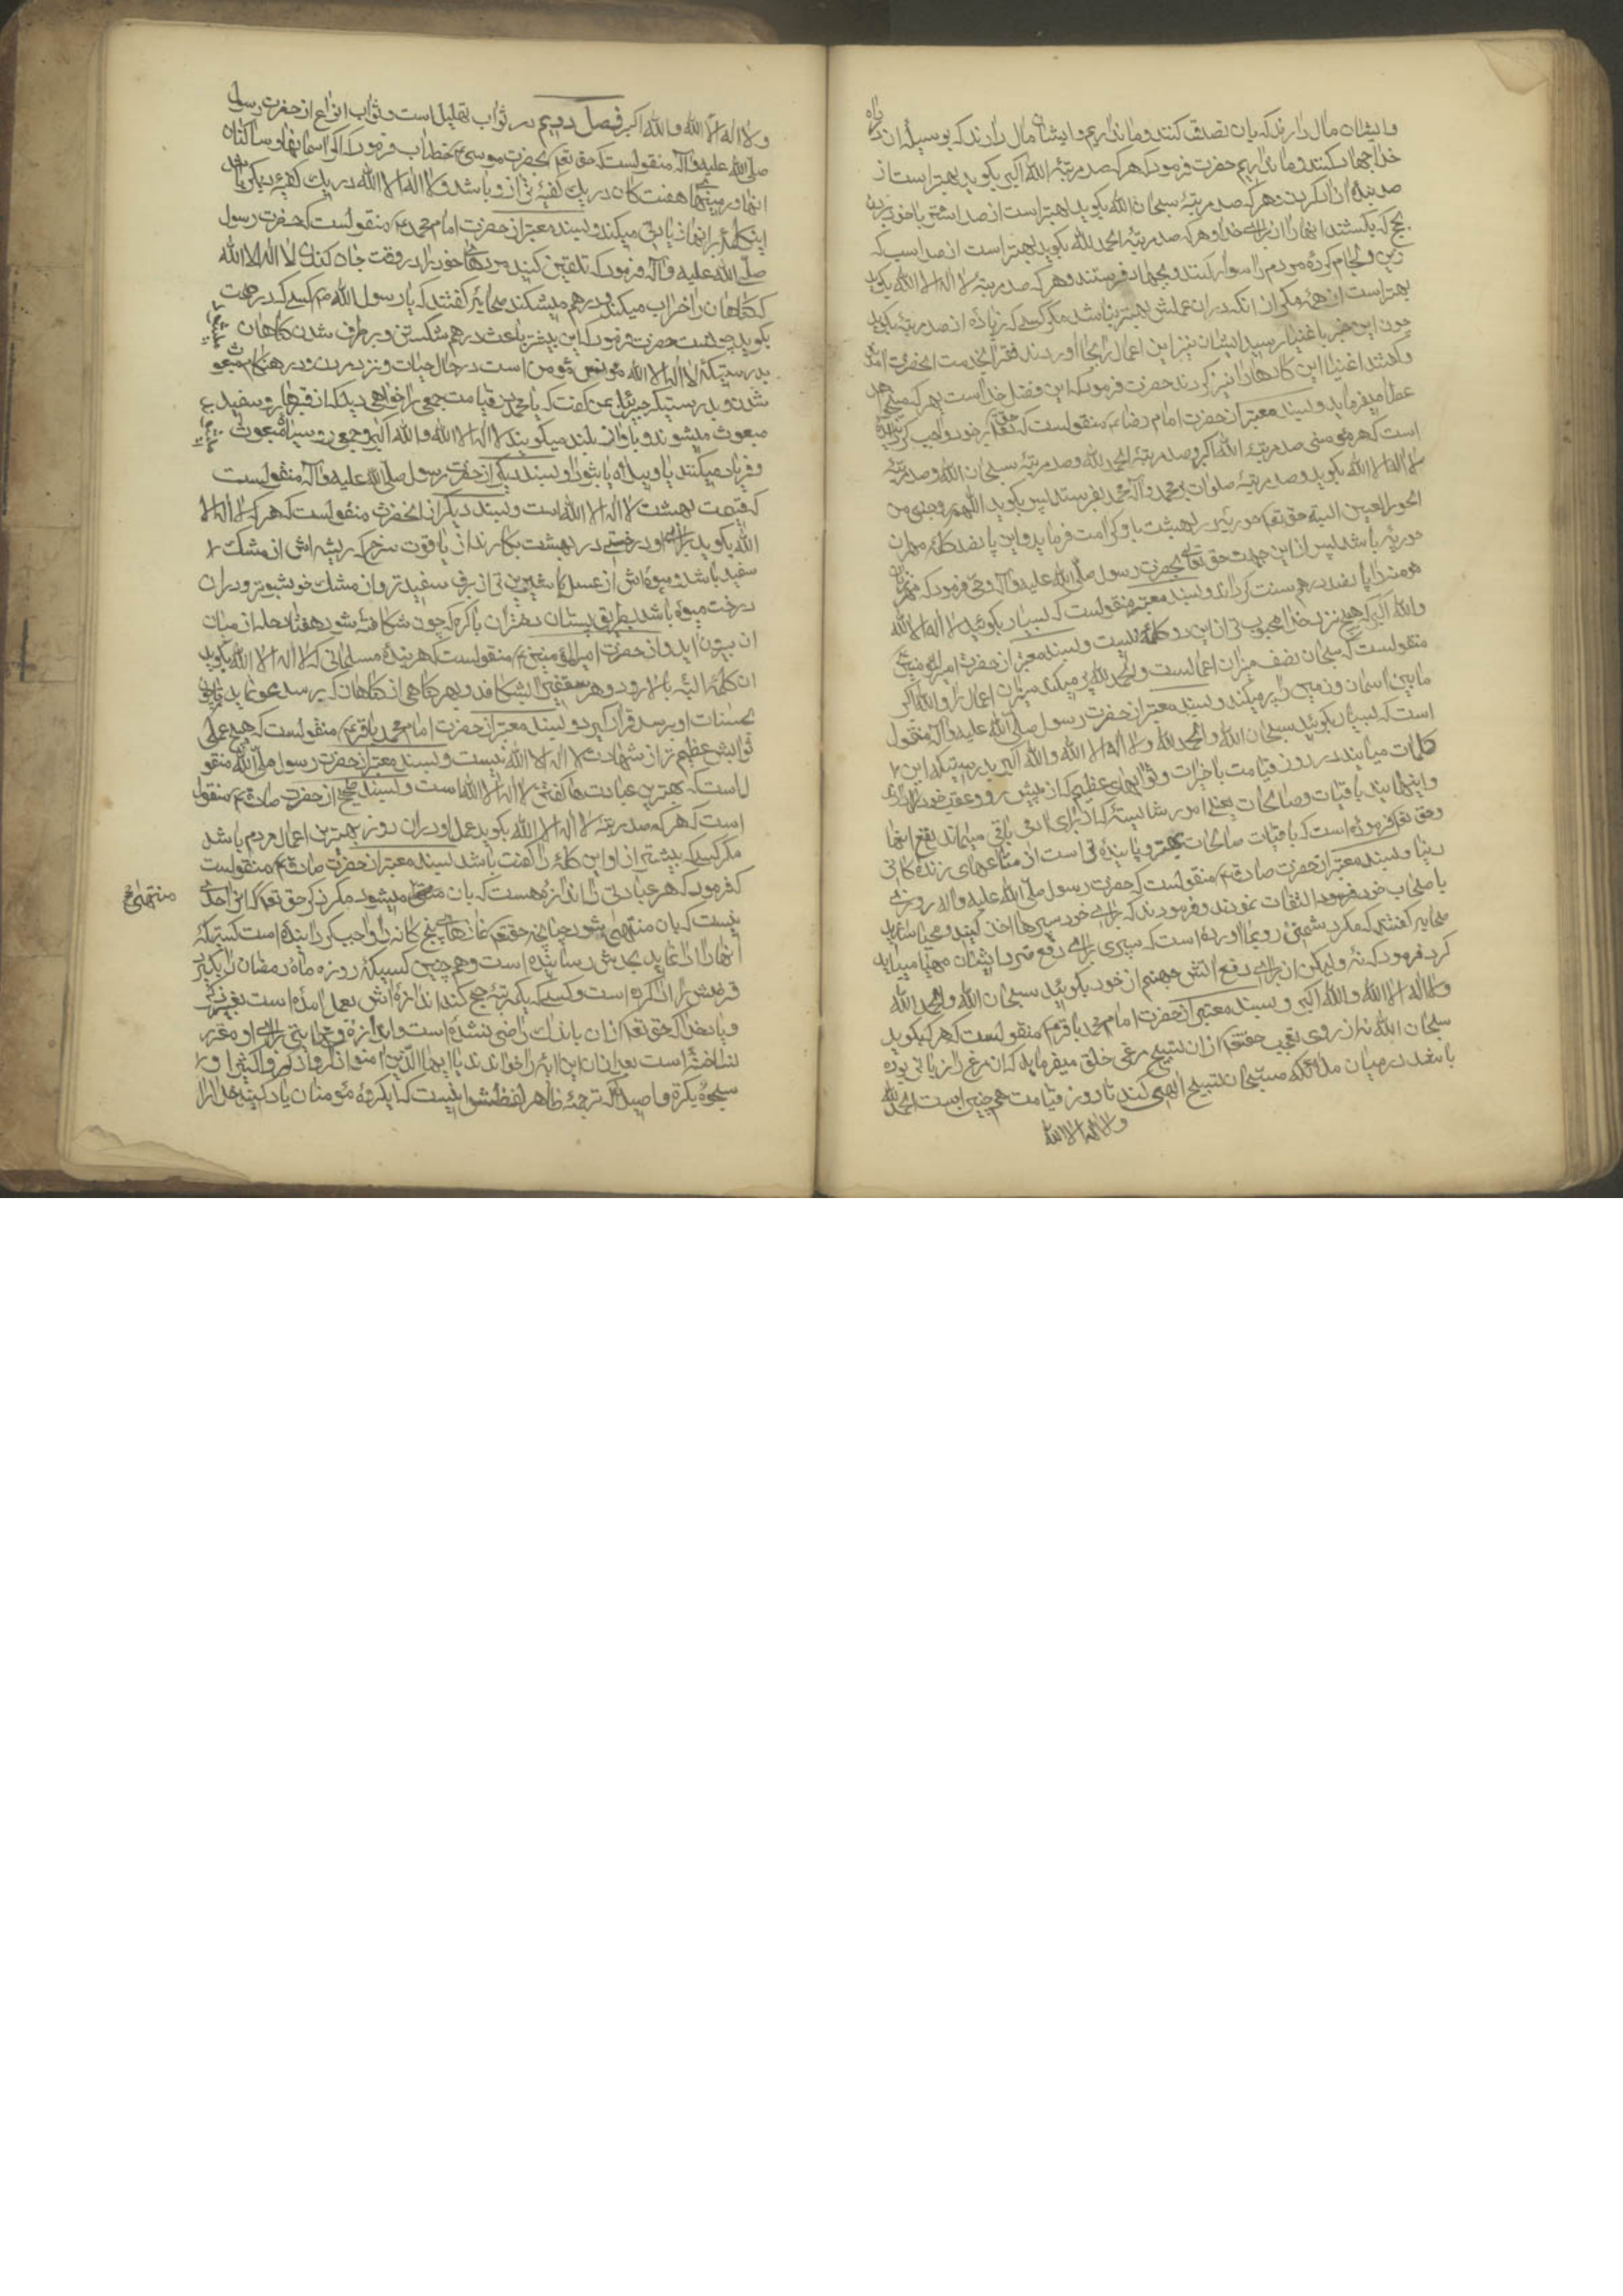 وایشان مال دارند که بان تصدق کنند و ما نداریم و ایشان مال دارند که بوسیلهٔ ان در راه
خدا جهاد کنند و ما نداریم حضرت فرمود که هر که صد مرتبهٔ الله اکبر بکوید بهتر است از
صد بندهٔ ازاد کردن و هر که صد مرتبهٔ سبحان الله بکوید بهتر است از صد اشتر با خود بردن
بحج که بکشند انها را از برای خدا و هر که صد مرتبهٔ الحمد لله بکوید بهتر است از صد اسب که
زین و لجام کرده مردم را سوار کنند و بجهاد فرستند و هر که صد مرتبهٔ لا اله الا الله بکوید
بهتر است از همه مکر از انکه دران عملش بهتر باشد مکر کسی که زیاده از صد مرتبهٔ بکوید
چون این خبر باغنیا رسید ایشان نیز این اعمال را بجا اوردند فقرا بخدمت انحضرت امدند
و کفتند اغنیا این کارها را نیز کردند حضرت فرمود که این فضل خداست بهر که میخواهد
عطا میفرماید و بسند معتبر از حضرت امام رضا ع منقولست که حق تعم بر خود واجب کردانیده
است که هر مؤمنی صد مرتبهٔ الله اکبر و صد مرتبهٔ الحمد لله و صد مرتبهٔ سبحان الله و صد مرتبهٔ
لا اله الا الله بکوید و صد مرتبهٔ صلوات بر محمد و آله محمد بفرستد پس بکوید اللهم زوجنی من
الحور العین البته حق تعم حوریهٔ در بهشت باو کرامت فرماید و این پانصد کلمه مهر ان
حوریه باشد پس از این جهت حق تعالی بحضرت رسول صلی الله علیه و آله وحی فرمود که مهر زنان
مؤمنه را پانصد درهم سنت کرداند و بسند معتبر منقولست که بسیار بکوئید لا اله الا الله
والله اکبر که هیچ نزد خدا محبوب تر از این دو کلمه نیست و بسند معتبر از حضرت امیر المؤمنین ع
منقولست که سبحان نصف میزان اعمالست و الحمد لله پر میکند میزان اعمال را و الله اکبر
مابین اسمان و زمین را پر میکند و بسند معتبر از حضرت رسول صلی الله علیه و آله منقول
است که بسیار بکوئید سبحان الله والحمد لله ولا اله الا الله والله اکبر بدرستیکه این
کلمات میایند در روز قیامت با خیرات و ثوابهای عظیم که از پیش رو و عقب خود دارند
و اینها بند باقیات وصالحات یعنی امور شایسته که از برای ادمی باقی میماند نفع انها
وحق تعم فرموده است که باقیات صالحات بهتر و پاینده تر است از متاعهای زندکانی
دنیا و بسند معتبر از حضرت صادق ع منقولست که حضرت رسول صلی الله علیه واله روزی
باصحاب خود فرمود التفات نمودند و فرمودند که برای خود سپرها اخذ کنید و مهیا سازید
صحابه کفتند که مکر دشمنی رو بما اورده است که سپری برای دفع ضرر ایشان مهیا میباید
کرد فرمود که نه ولیکن از برای دفع اتش جهنم از خود بکوئید سبحان الله والحمد الله
ولا اله الا الله والله اکبر و بسند معتبر از حضرت امام محمد باقر ع منقولست که هر که بکوید
سبحان الله نه از روی تعجب حقتعم از ان تسبیح مرغی خلق میفرماید که ان مرغ را زبانی بوده
باشد در میان ملائکه مسبحان تسبیح الهی کند تا روز قیامت همچنین است الحمد لله
ولا اله الا الله
ولا اله الا الله والله اکبر فصل دویم در ثواب تهلیل است و ثواب انواع از حضرت رسول
صلی الله علیه و آله منقولست که حق تعم بحضرت موسی ع خطاب فرمود که اکر اسمانها و ساکنان
انها و زمینهای هفت کانه در یک کفهٔ ترازو باشد و لا اله الا الله در یک کفهٔ دیکر باشد
اینکلمه بر انها زیادتی میکند و بسند معتبر از حضرت امام محمد ع منقولست که حضرت رسول
صلی الله علیه و آله فرمود که تلقین کنید مردهای خود را در وقت جان کندن لا اله الا الله
که کناهان را خراب میکند و درهم میشکند صحابه کفتند که یا رسول الله ص کسی که در صحت
بکوید چونست حضرت فرمود که این بیشتر باعث درهم شکستن و برطرف شدن کناهان میشود
بدرستیکه لا اله الا الله مونس مؤمن است در حال حیات و نزد مردن و در هنکام مبعوث
شدن و بدرستیکه جبرئیل بمن کفت که یا محمد در قیامت جمعی را خواهی دید که از قبرها رو سفید
مبعوث میشوند و باواز بلند میکویند لا اله الا الله والله اکبر و جمعی رو سیاه مبعوث میشوند
و فریاد میکنند یا ویلاه یا ثبورا و بسند دیکر از حضرت رسول صلی الله علیه و آله منقولست
که قیمت بهشت لا اله الا الله است و بسند دیکر از انحضرت منقولست که هر که لا اله الا
الله بکوید برای او درختی در بهشت بکارند از یاقوت سرخ که ریشه اش از مشک
سفید باشد و میوه اش از عسل شیرین تر از برف سفیدتر و از مشک خوشبوتر و دران
درخت میوه باشد بطریق پستان دختران باکره که چون شکافته شود هفتاد حله از میان
ان بیرون اید و از حضرت امیر المؤمنین ع منقولست که هر بندهٔ مسلمانی که لا اله الا الله بکوید
ان کلمه البته بالا رود و هر سقفی را بشکافد و بهر کناهی از کناهان که برسد محو نماید تا چون
بحسنات او برسد قرار کیرد و بسند معتبر از حضرت امام محمد باقر ع منقولست که هیچ عملی
ثوابش عظیم تر از شهادت لا اله الا الله نیست و بسند معتبر از حضرت رسول صلی الله منقو
لست که بهترین عبادتها کفتن لا اله الا الله است و بسند صحیح از حضرت صادق ع منقول
است که هر که صد مرتبهٔ لا اله الا الله بکوید عمل او دران روز بهترین اعمال مردم باشد
مکر کسی که بیشتر از او این کلمه را کفته باشد بسند معتبر از حضرت صادق ع منقولست
که فرمود که هر عبادتی را اندازه هست که بان منتهی میشود مکر ذکر حق تعم که انرا حدی
منتهی
نیست که بان منتهی شود چنانچه حقتعم نمازهای پنج کانه را واجب کردانیده است کسیکه
انها را ادا نماید بحدش رسانیده است و همچنین کسیکه روزه ماه رمضان را بکیرد
فرضش را ادا کرده است و کسی که یکمرتبه حج کند اندازه اش بعمل امده است بغیر ذکر
خدا که حق تعم از ان باندک راضی نشده است و اندازه و نهایتی برای او مقرر
نساخته است بعد ازان این ایه را خواندند یا ایها الذین امنوا اذکروا ذکرا کثیرا و
سبحوه بکرة واصیلا که ترجمهٔ ظاهر لفظش اینست که ایکروه مؤمنان یاد کنید خدا را